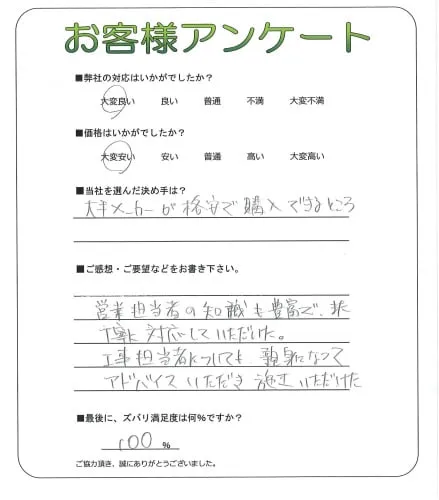 お客様アンケート
■弊社の対応はいかがでしたか?
大変良い 良い 普通 不満 大変不満
■価格はいかがでしたか?
大変安い 安い 普通 高い 大変高い
■当社を選んだ決め手は?
大手メーカーが格安で購入できるところ
■ご感想・ご要望などをお書き下さい。
営業担当者の知識も豊富で、又
丁寧に対応していただけた。
工事担当者についても親身になって
アドバイスいただき施工いただけた
■最後に、ズバリ満足度は何%ですか?
100 %
ご協力頂き、誠にありがとうございました。